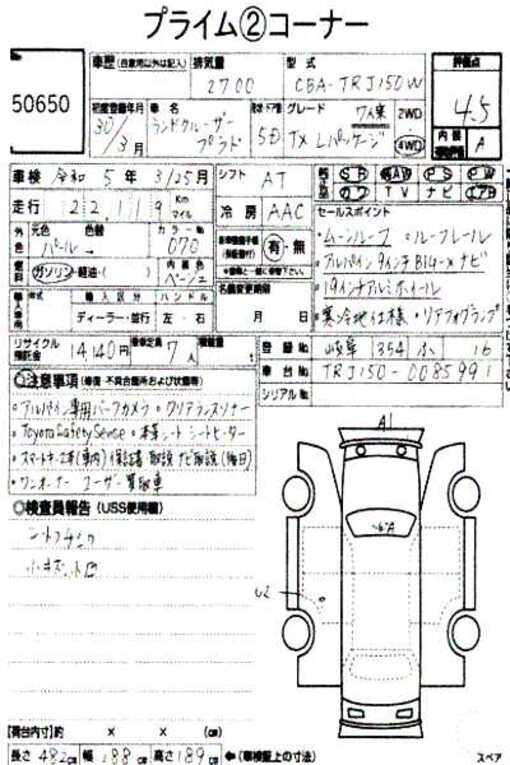 プライム②コーナー
50650
車歴 (自家用以外は記入) 排気量 型式 評価点
2700 CBA-TRJ150W
4.5
初度登録年月 車名 ドア数 グレード 7人乗 2WD
30/3月 ランドクルーザー プラド 5D TX Lパッケージ 4WD
内装 A
車検 令和 5年 3/25月 シフト AT SR AAW PS PW
カワ TV ナビ エアB
走行 22,119 Km マイル 冷房 AAC セールスポイント
外色 元色 色替 カラーNo
パール → 070 有・無
・ムーンルーフ ・ルーフレール
・アルパイン9インチBIG-Xナビ
燃料 ガソリン・軽油・( ) 内装色 ベージュ
・19インチアルミホイール
名義変更期限 月 日
・寒冷地仕様 ・リアフォグランプ
輸入車 年式 輸入区分 ハンドル
ディーラー・並行 左・右
リサイクル預託金 14,140円 乗車定員 7人 積載量 t
登録No 岐阜 354 ふ 16
車台No TRJ150-0085991
シリアルNo
注意事項 (修復・不具合箇所および状態等)
・アルパイン専用バックカメラ・クリアランスソナー
・Toyota Safety Sense ・本革シート シートヒーター
・スマートキー2本(車内) 保証書 取説 ナビ取説(後日)
・ワンオーナー ユーザー買取車
検査員報告 (USS使用欄)
シートスレ
小キズ 凹
A1
U2
[荷台内寸] 約 × × (cm)
長さ 482cm 幅 188cm 高さ 189cm ←(車検証上の寸法)
スペア